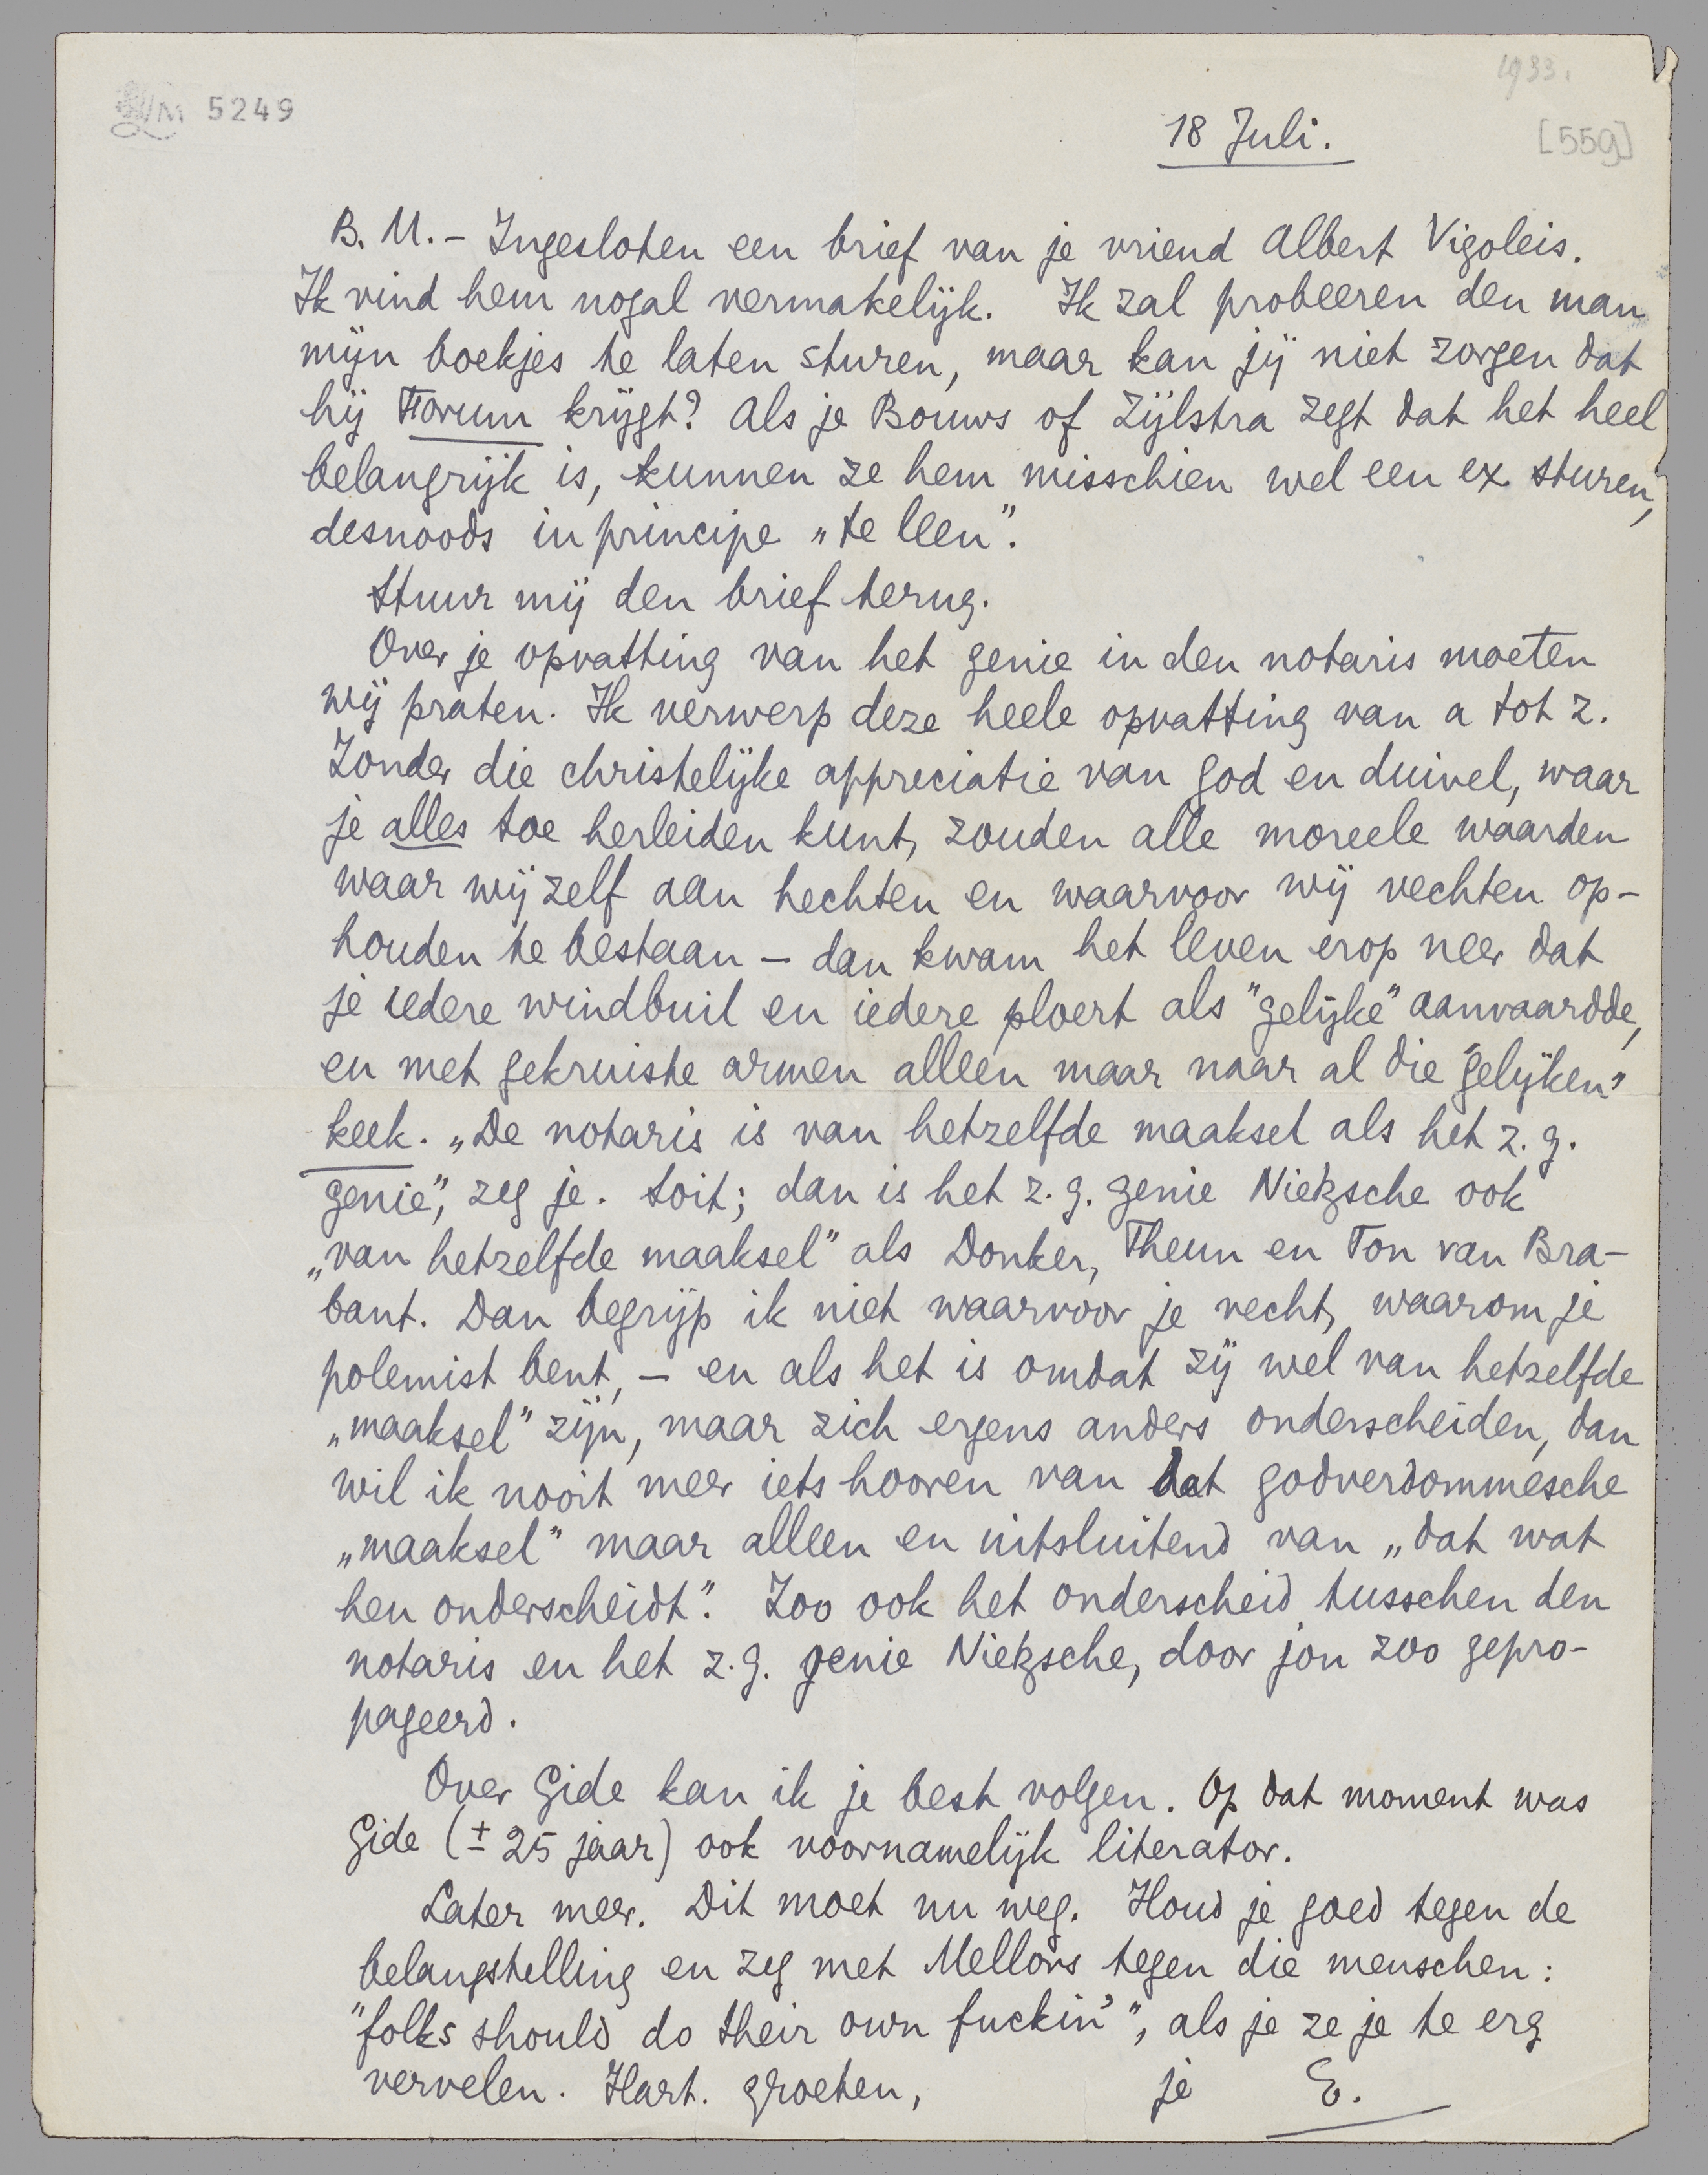 1933.
LM 5249
18 Juli.
[559]
B. M. – Ingesloten een brief van je vriend Albert Vigoleis.
Ik vind hem nogal vermakelijk. Ik zal probeeren den man
mijn boekjes te laten sturen, maar kan jij niet zorgen dat
hij Forum krijgt? Als je Bouws of Zijlstra zegt dat het heel
belangrijk is, kunnen ze hem misschien wel een ex. sturen,
desnoods in principe „te leen”.
Stuur mij den brief terug.
Over je opvatting van het genie in den notaris moeten
wij praten. Ik verwerp deze heele opvatting van a tot z.
Zonder die christelijke appreciatie van god en duivel, waar
je alles toe herleiden kunt, zouden alle moreele waarden
waar wij zelf aan hechten en waarvoor wij vechten op-
houden te bestaan – dan kwam het leven erop neer dat
je iedere windbuil en iedere ploert als "gelijke" aanvaardde,
en met gekruiste armen alleen maar naar al die "gelijken"
keek. „De notaris is van hetzelfde maaksel als het z.g.
genie”, zeg je. Soit; dan is het z.g. genie Nietzsche ook
„van hetzelfde maaksel” als Donker, Theun en Ton van Bra-
bant. Dan begrijp ik niet waarvoor je vecht, waarom je
polemist bent, – en als het is omdat zij wel van hetzelfde
„maaksel” zijn, maar zich ergens anders onderscheiden, dan
wil ik nooit meer iets hooren van dat godverdommesche
„maaksel” maar alleen en uitsluitend van „dat wat
hen onderscheidt”. Zoo ook het onderscheid tusschen den
notaris en het z.g. genie Nietzsche, door jou zoo gepro-
pageerd.
Over Gide kan ik je best volgen. Op dat moment was
Gide (± 25 jaar) ook voornamelijk literator.
Later meer. Dit moet nu weg. Houd je goed tegen de
belangstelling en zeg met Mellors tegen die menschen:
"folks should do their own fuckin'", als je ze je te erg
vervelen. Hart. groeten,
je E.